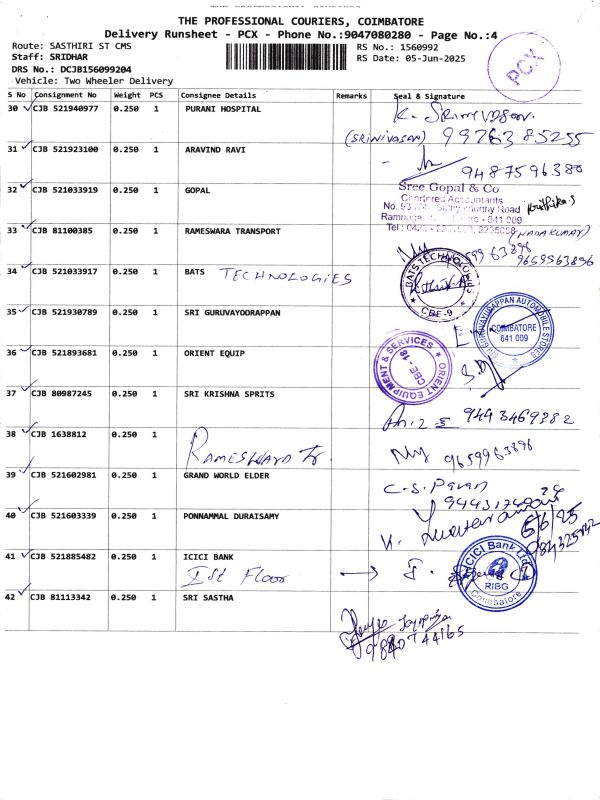 THE PROFESSIONAL COURIERS, COIMBATORE
Delivery Runsheet - PCX - Phone No.:9047080280 - Page No.:4
Route: SASTHIRI ST CMS
RS No.: 1560992
Staff: SRIDHAR
RS Date: 05-Jun-2025
DRS No.: DCJB156099204
Vehicle: Two Wheeler Delivery
PCX
S No Consignment No Weight PCS Consignee Details Remarks Seal & Signature
30 CJB 521940977 0.250 1 PURANI HOSPITAL
K. SRINIVASAN.
(SRINIVASAN) 9976385255
31 CJB 521923100 0.250 1 ARAVIND RAVI
9487596380
32 CJB 521033919 0.250 1 GOPAL
Sree Gopal & Co
Chartered Accountants
Road
641 009
33 CJB 81100385 0.250 1 RAMESWARA TRANSPORT
(NANDAKUMAR)
9659963896
34 CJB 521033917 0.250 1 BATS TECHNOLOGIES
BATS TECHNOLOGIES
CBE-9
35 CJB 521930789 0.250 1 SRI GURUVAYOORAPPAN
SRI GURUVAYURAPPAN AUTOMOBILE STORES
COIMBATORE
641 009
36 CJB 521893681 0.250 1 ORIENT EQUIP
ORIENT EQUIPMENT & SERVICES
CBE - 18
37 CJB 80987245 0.250 1 SRI KRISHNA SPRITS
9443469282
38 CJB 1638812 0.250 1
RAMESWARA Tr.
9659963896
39 CJB 521602981 0.250 1 GRAND WORLD ELDER
C.S. Pavan
40 CJB 521603339 0.250 1 PONNAMMAL DURAISAMY
5/6/25
41 CJB 521885482 0.250 1 ICICI BANK
Ist Floor
ICICI Bank Ltd
RIBG
Coimbatore
42 CJB 81113342 0.250 1 SRI SASTHA
9840744165